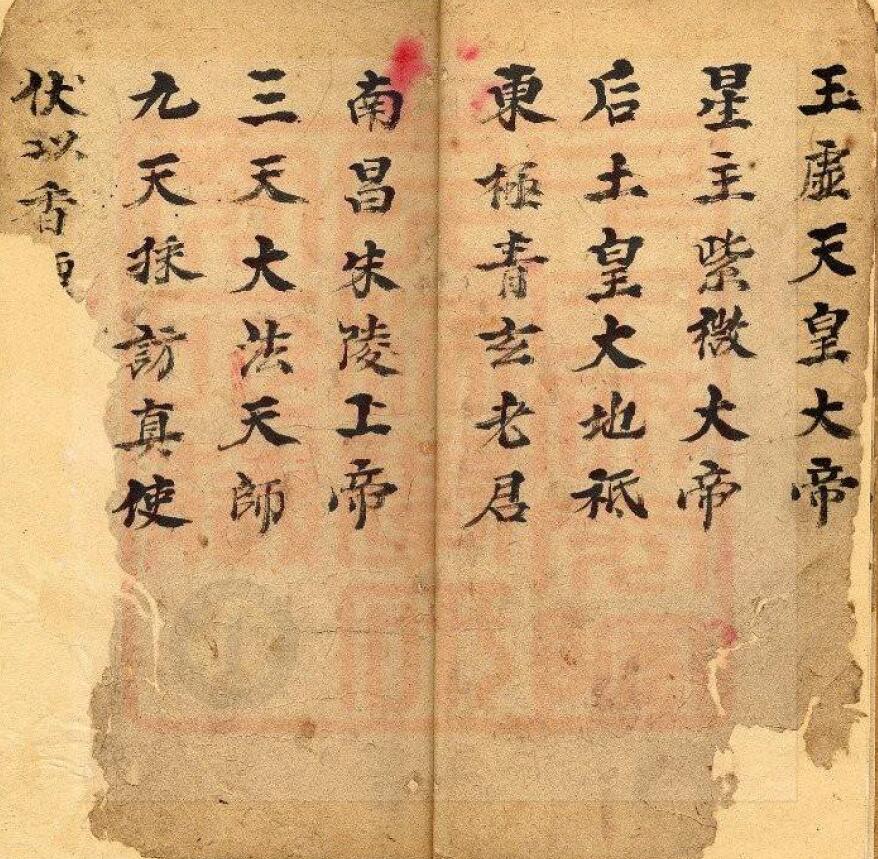 玉虛天皇大帝
星主紫微大帝
后土皇大地祗
東極青玄老君
南昌朱陵上帝
三天大法天師
九天採訪真使
伏以香